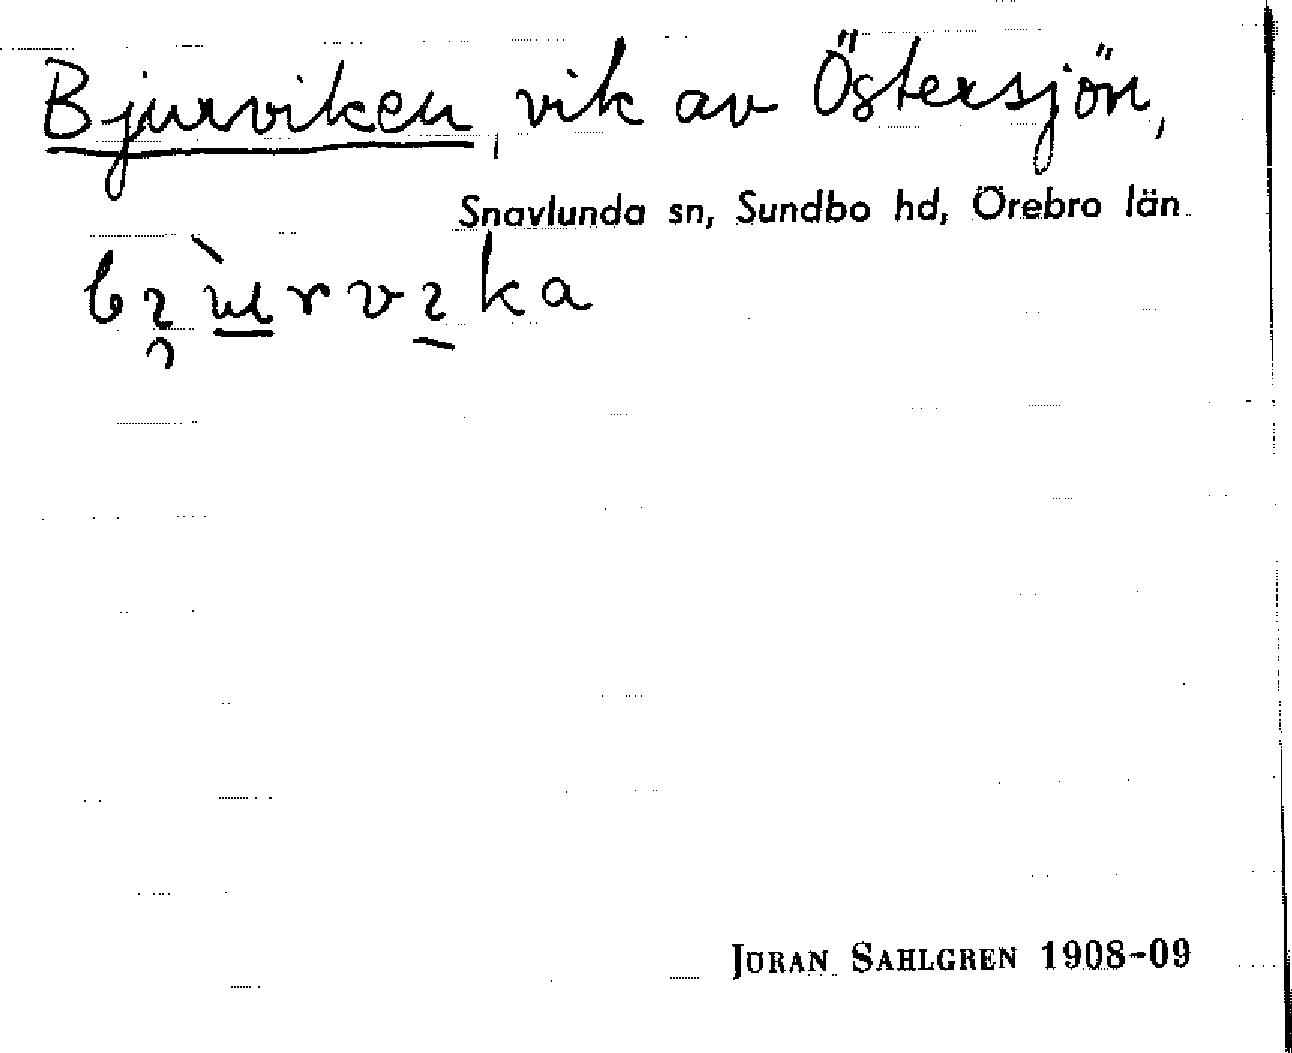 Bjurviken, vik av Östersjön,
Snavlunda sn, Sundbo hd, Örebro län
JÖRAN SAHLGREN 1908-09